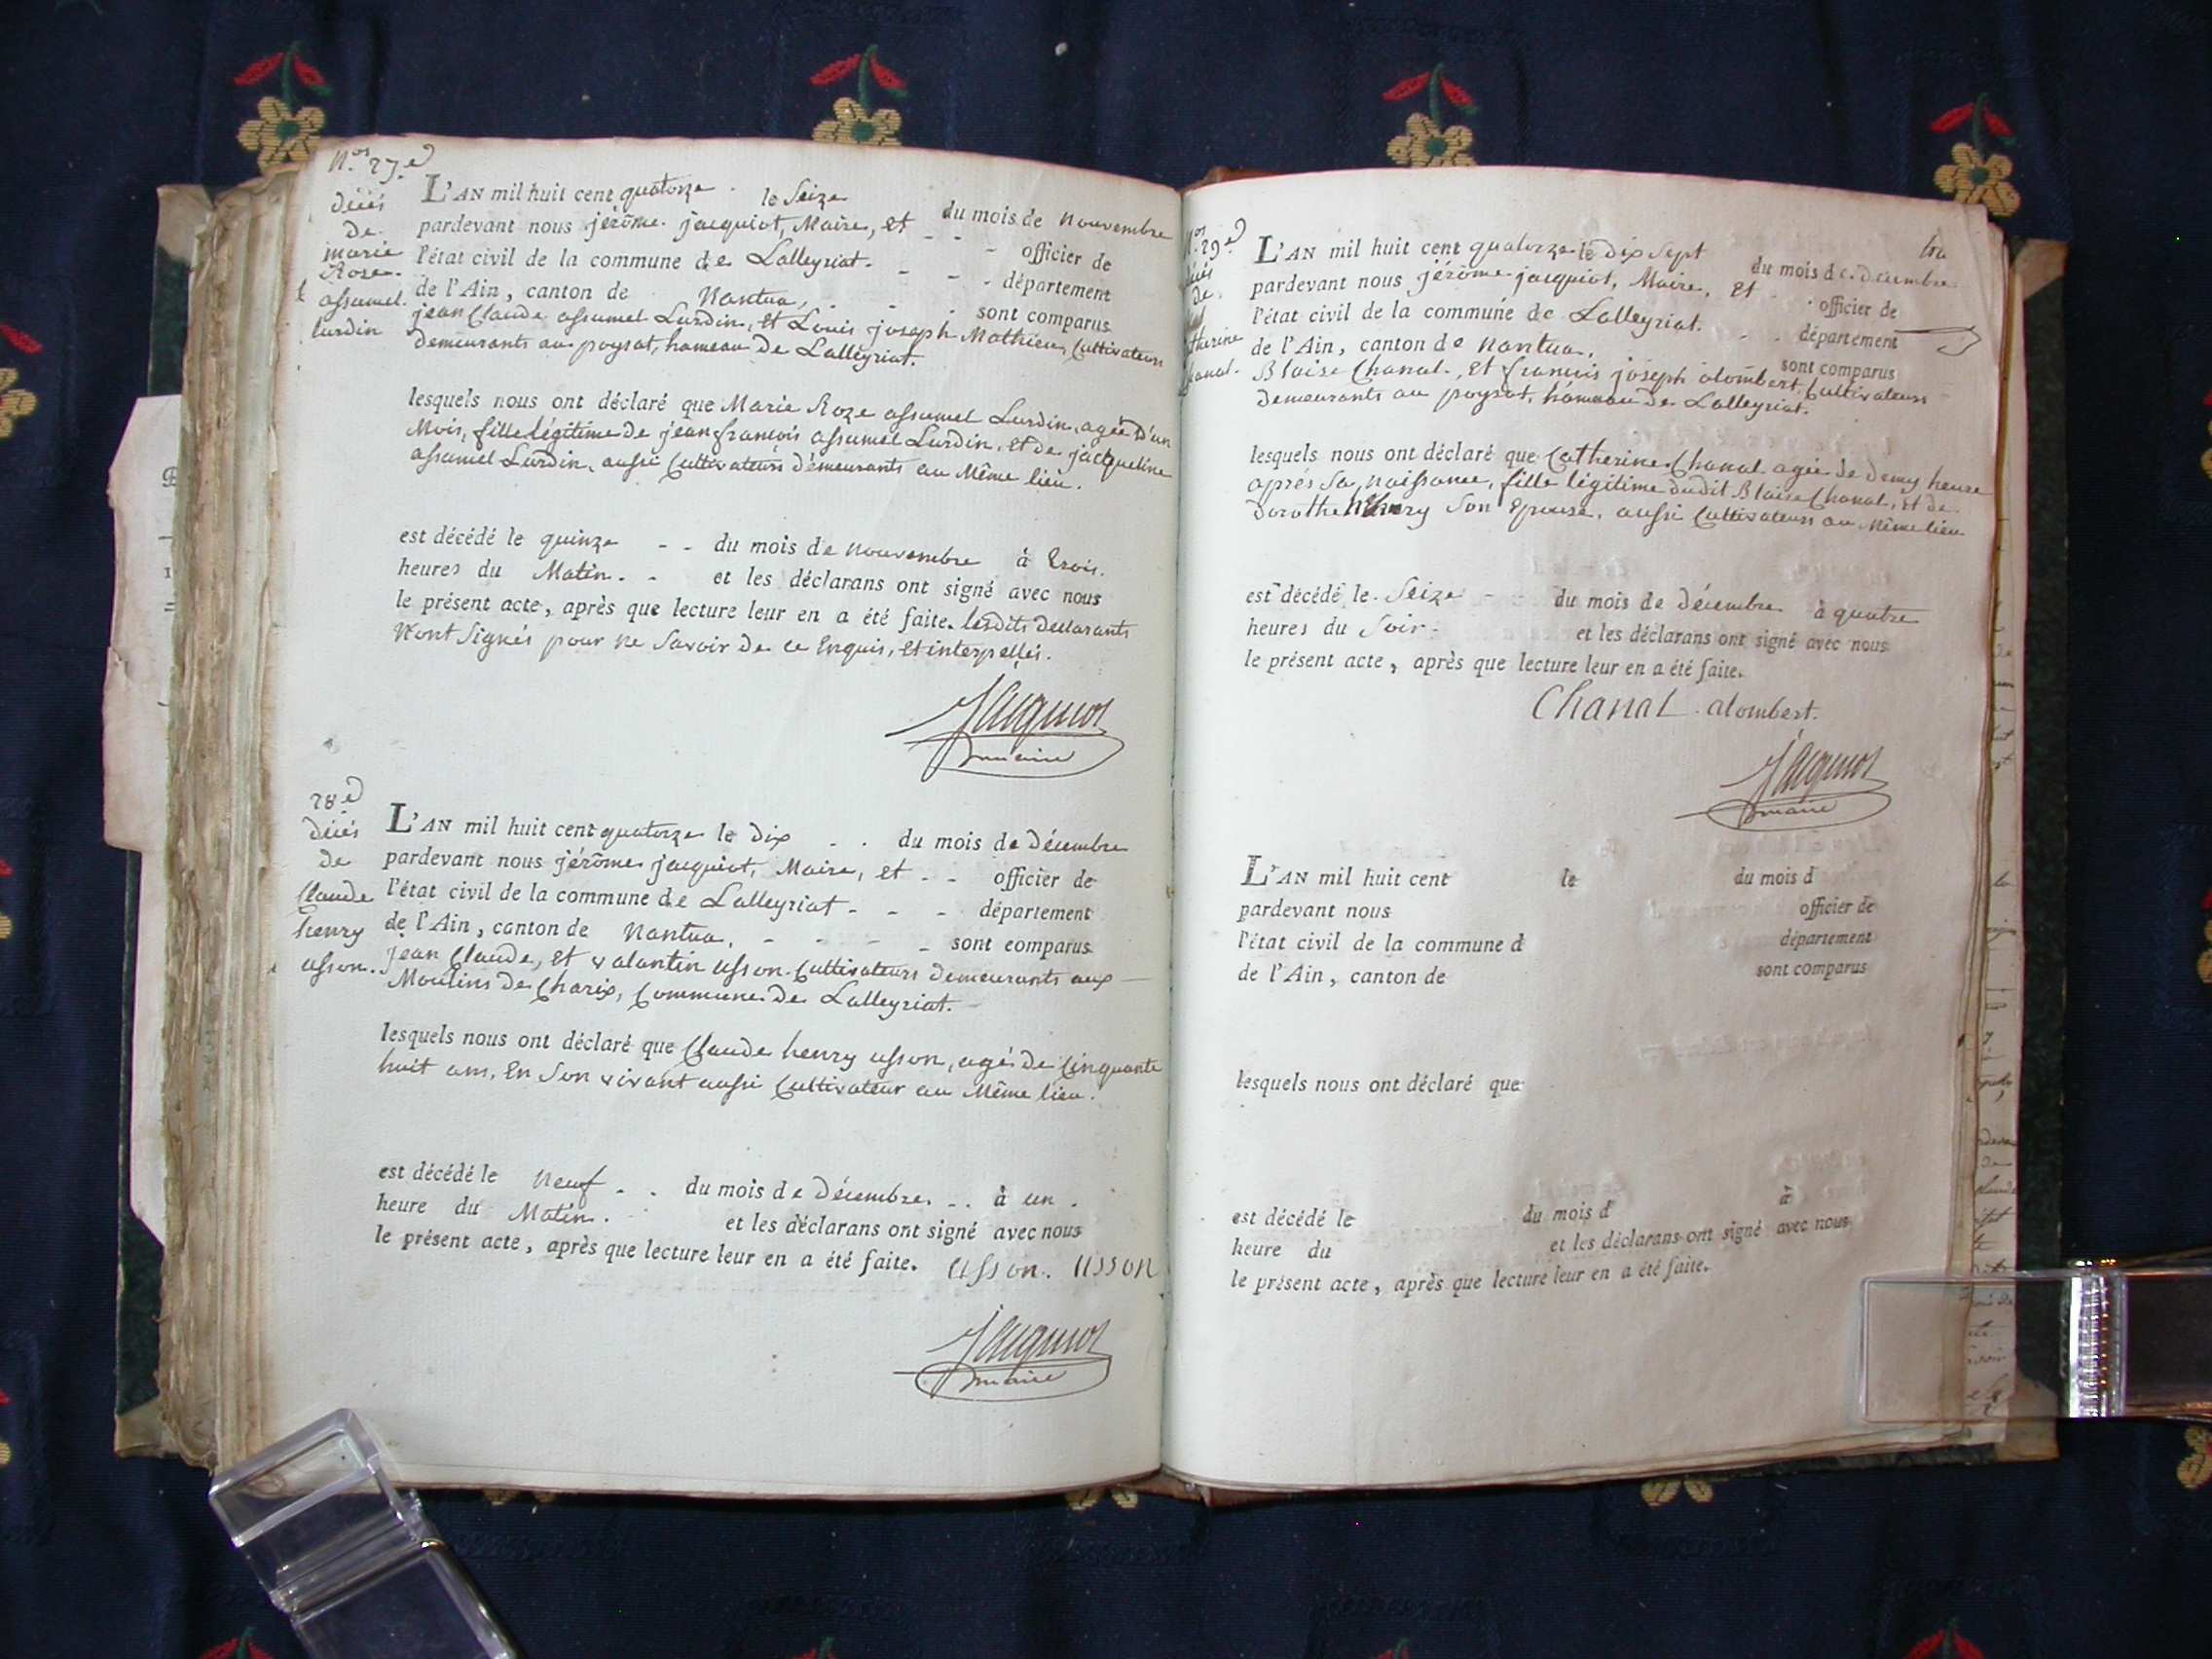 N.os 27.e
décés
de
marie
Roze
assumel
Lurdin
L'AN mil huit cent quatorze le Seize du mois de Nouvembre
pardevant nous jérôme jacquiot, Maire, et officier de
l'état civil de la commune de Lalleyriat. département
de l'Ain, canton de Nantua, sont comparus
jean Claude assumel Lurdin, et Louis joseph Mathieu, Cultivateurs
demeurants au poysat, hameau de Lalleyriat.
lesquels nous ont déclaré que Marie Roze assumel Lurdin, agée d'un
Mois, fille légitime de jean françois assumel Lurdin, et de jacqueline
assumel Lurdin, aussi Cultivateurs démeurants au Même lieu.
est décédé le quinze du mois de Nouvembre à trois.
heures du Matin. et les déclarans ont signé avec nous
le présent acte, après que lecture leur en a été faite. lesdits declarants
N'ont Signés pour ne Savoir de ce Enquis, et interpellés.
Jacquiot
maire
28e
décés
de
Claude
henry
usson.
L'AN mil huit cent quatorze le dix du mois de Décembre
pardevant nous jérôme jacquiot, Maire, et officier de
l'état civil de la commune de Lalleyriat département
de l'Ain, canton de Nantua. sont comparus
jean Claude, et valantin usson Cultivateurs demeurants aux
Moulins de Charix, Commune de Lalleyriat.
lesquels nous ont déclaré que Claude henry usson, agé de Cinquante
huit ans, En Son vivant aussi Cultivateur au Même lieu.
est décédé le Neuf du mois de Décembre à un.
heure du Matin. et les déclarans ont signé avec nous
le présent acte, après que lecture leur en a été faite. Usson. USSON
Jacquiot
maire
N.os 29e
de
therine
hanal.
L'AN mil huit cent quatorze le dix Sept du mois de décembre
pardevant nous jérôme jacquiot, Maire, et officier de
l'état civil de la commune de Lalleyriat. département
de l'Ain, canton de Nantua. sont comparus
Blaise Chanal, et françois joseph alombert, Cultivateurs
demeurants au poysat, hameau de Lalleyriat.
lesquels nous ont déclaré que Catherine Chanal agée de demy heure
aprés Sa naissance, fille légitime dudit Blaise Chanal, et de
dorothé henry Son Epouse, aussi Cultivateurs au Même lieu
est décédé le Seize du mois de Décembre à quatre
heures du Soir. et les déclarans ont signé avec nous
le présent acte, après que lecture leur en a été faite.
Chanal alombert.
Jacquiot
maire
L'AN mil huit cent le du mois d
pardevant nous officier de
l'état civil de la commune d département
de l'Ain, canton de sont comparus
lesquels nous ont déclaré que
est décédé le du mois d à
heure du et les déclarans ont signé avec nous
le présent acte, après que lecture leur en a été faite.